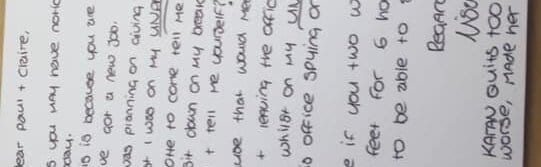 ear paul + Claire,
s you may have notic
day.
is is because you are
ve got a new job.
was planning on giving
t I was on my UNPA
otte to come tell me
it down on my break
+ tell me yourself?
use that would mea
+ leaving the offic
whilst on my UN
o office spying on
e if you two w
feet for 6 ho
to be able to
Regard
KATAN quits too
worse, made her